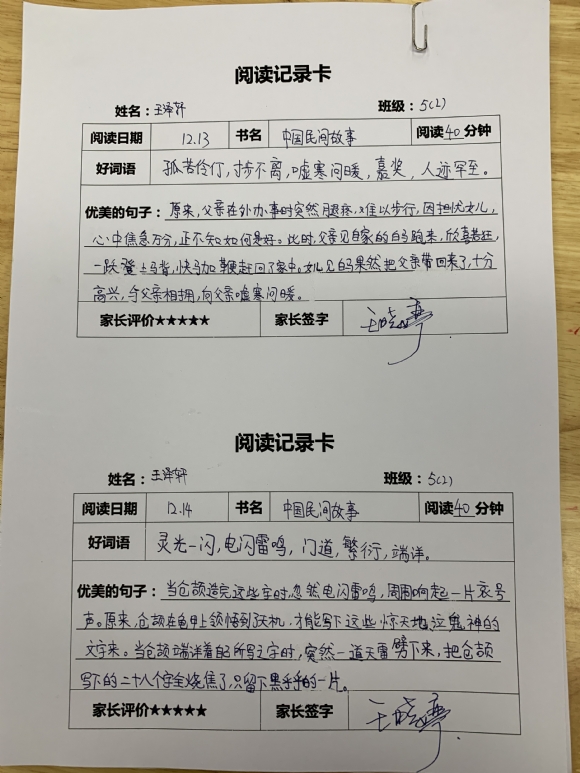 阅读记录卡
姓名：王泽轩 班级：5(2)
阅读日期 12.13 书名 中国民间故事 阅读40分钟
好词语 孤苦伶仃，寸步不离，嘘寒问暖，嘉奖，人迹罕至。
优美的句子：原来，父亲在外办事时突然腿疼，难以步行，因担忧女儿，
心中焦急万分，正不知如何是好。此时，父亲见自家的白马跑来，欣喜若狂，
一跃登上马背，快马加鞭赶回了家中。女儿见白马果然把父亲带回来了，十分
高兴，与父亲相拥，向父亲嘘寒问暖。
家长评价★★★★★ 家长签字 王晓
阅读记录卡
姓名：王泽轩 班级：5(2)
阅读日期 12.14 书名 中国民间故事 阅读40分钟
好词语 灵光一闪，电闪雷鸣，门道，繁衍，端详。
优美的句子：当仓颉造完这些字时，忽然电闪雷鸣，周围响起一片哀号
声。原来，仓颉在龟甲上领悟到天机，才能写下这些惊天地泣鬼神的
文字来。当仓颉端详着自己所写之字时，突然一道天雷劈下来，把仓颉
写下的二十八个字全烧焦了，只留下黑乎乎的一片。
家长评价★★★★★ 家长签字 王晓